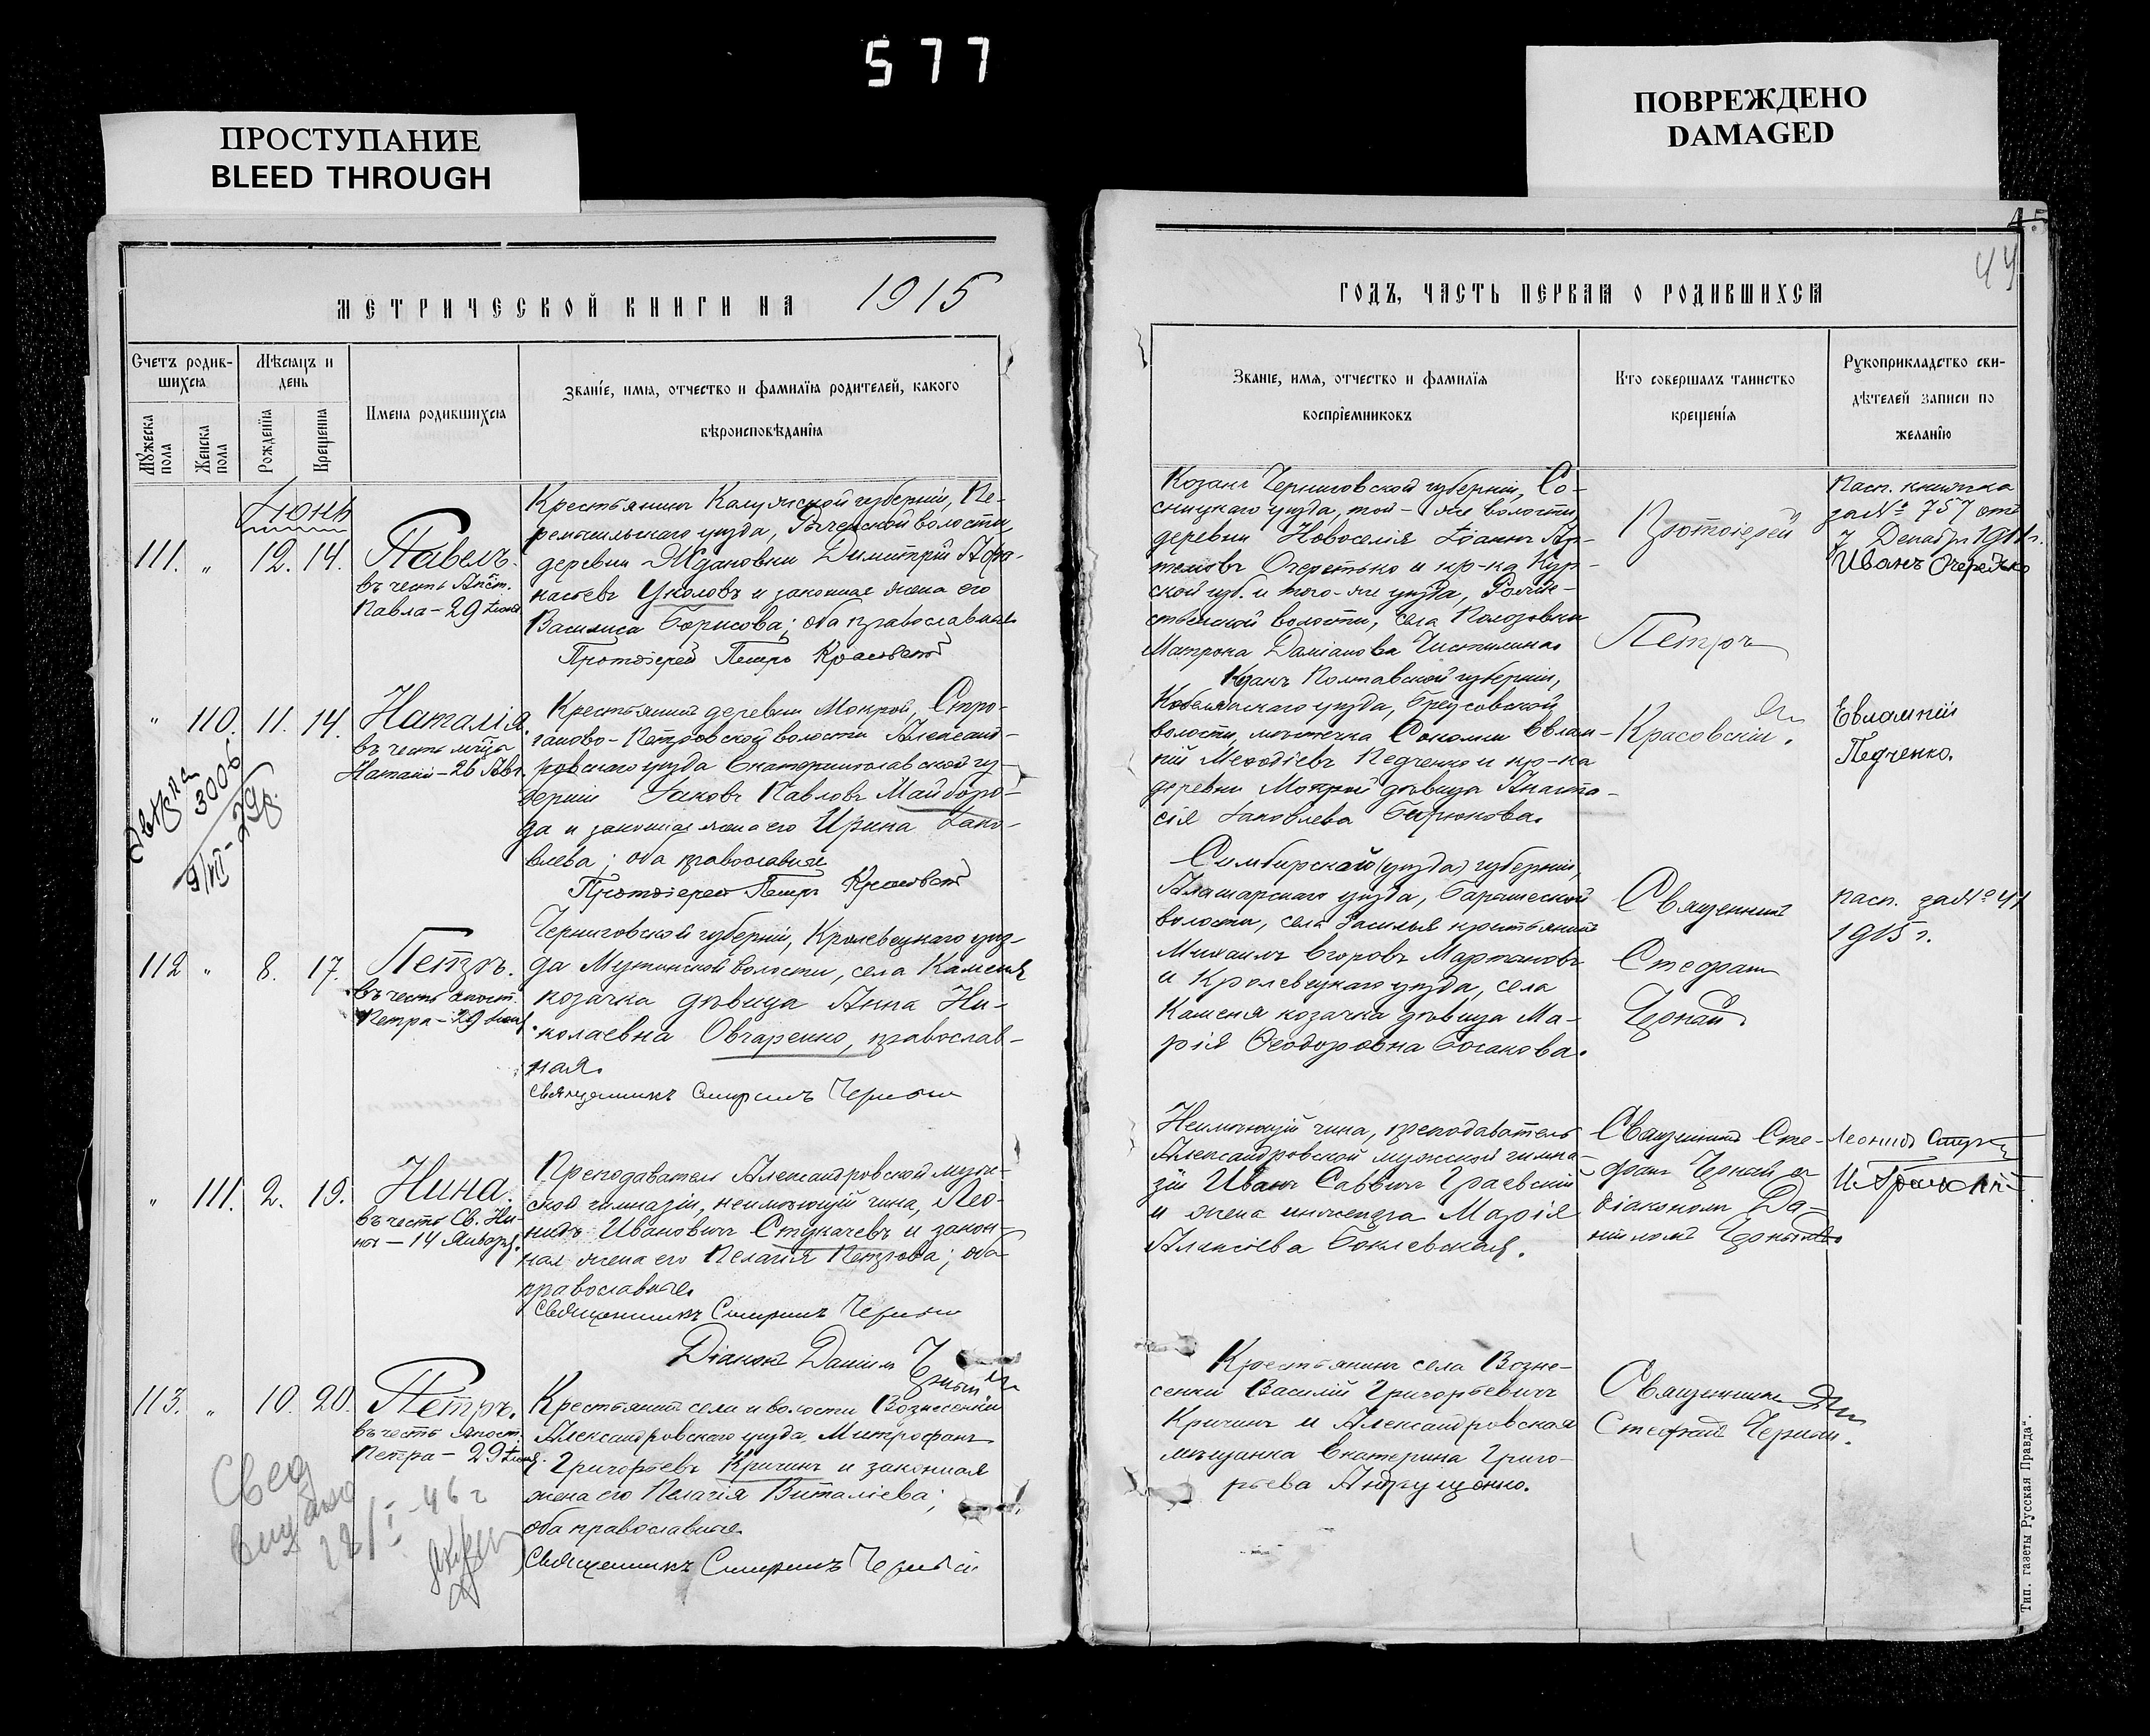 577
ПРОСТУПАНИЕ
BLEED THROUGH
ПОВРЕЖДЕНО
DAMAGED
МЕТРИЧЕСКОЙ КНИГИ НА 1915
Счетъ родив-
шихся
Мѣсяцъ и
день
Мужеска
пола
Женска
пола
Рожденія
Крещенія
Имена родившихся
Званіе, имя, отчество и фамилія родителей, какого
вѣроисповѣданія
Іюнь
111. „ 12. 14.
Павелъ.
въ честь Апст.
Павла - 29 Іюня
Крестьянинъ Калужской губерніи, Пе-
ремышльскаго уѣзда, волости,
деревни Ждановки Димитрій Афа-
насьевъ Уколовъ и законная жена его
Василиса Борисова; оба православные
Протоіерей Петръ Красовскій
„ 110. 11. 14.
Наталія.
въ честь мчцы
Наталіи - 26 Авг.
Крестьянинъ деревни Мокрой, Стро-
ганово-Петровской волости Александ-
ровскаго уѣзда Екатеринославской гу-
берніи Іаковъ Павловъ Майборо-
да и законная жена его Ирина Іако-
влева; оба православные
Протоіерей Петръ Красовскій
3006
9/VII - 29г.
112 „ 8. 17.
Петръ.
въ честь апост.
Петра - 29 Іюня.
Черниговской губерніи, Кролевецкаго уѣз-
да Мутинской волости, села Каменя
козачка дѣвица Анна Ни-
колаевна Овчаренко, православ-
ная.
Священникъ Стефанъ Черный
„ 111. 2. 19.
Нина.
въ честь Св. Ни-
ны - 14 Января.
Преподаватель Александровской муж-
ской гимназіи, неимѣющій чина, Лео-
нидъ Ивановичъ Стукачевъ и закон-
ная жена его Пелагія Петрова; оба
православные.
Священникъ Стефанъ Черный
Діаконъ Даніилъ Черный
113. „ 10. 20.
Петръ.
въ честь Апост.
Петра - 29 Іюня.
Крестьянинъ села и волости Вознесенки
Александровскаго уѣзда, Митрофанъ
Григорьевъ Кричинъ и законная
жена его Пелагія Виталіева;
оба православные.
Священникъ Стефанъ Черный
Свед
выдано
28/I - 46 г
44
ГОДЪ, ЧАСТЬ ПЕРВАЯ О РОДИВШИХСЯ
Званіе, имя, отчество и фамилія
воспріемниковъ
Кто совершалъ таинство
крещенія
Рукоприкладство сви-
дѣтелей записи по
желанію
Козакъ Черниговской губерніи, Со-
сницкаго уѣзда, той-же волости
деревни Новоселія Іоаннъ Ар-
темовъ Очеретько и кр-ка Кур-
ской губ. и того-же уѣзда, Рожде-
ственской волости, села Полозовки
Матрона Даміанова Чистилина.
Протоіерей
Петръ
Красовскій.
Пасп. книжка
за № 757 отъ
7 Декабр. 1911 г.
Иванъ Очередько
Козакъ Полтавской губерніи,
Кобелякскаго уѣзда, Бреусовской
волости, мѣстечка Соколки Евлам-
пій Меѳодіевъ Педченко и кр-ка
деревни Мокрой дѣвица Анаста-
сія Іаковлева Бирюкова.
Евлампій
Педченко.
Симбирской (уѣзда) губерніи,
Алатырскаго уѣзда, Барышской
волости, села Засилья крестьянинъ
Михаилъ Егоровъ Мартановъ
и Кролевецкаго уѣзда, села
Каменя козачка дѣвица Ма-
рія Ѳеодоровна Босакова.
Священникъ
Стефанъ
Черный
пасп. за № 41
1915 г.
Неимѣющій чина, преподаватель
Александровской мужской гимна-
зіи Иванъ Саввичъ Граевскій
и жена инженера Марія
Алексіева Боклевская.
Священникъ Сте-
фанъ Черный съ
діакономъ Да-
ніиломъ Чернымъ
Леонидъ
Крестьянинъ села Возне-
сенки Василій Григорьевичъ
Кричинъ и Александровская
мѣщанка Екатерина Григо-
рьева Андрущенко.
Священникъ
Стефанъ Черный.
Тип. газеты „Русская Правда“.